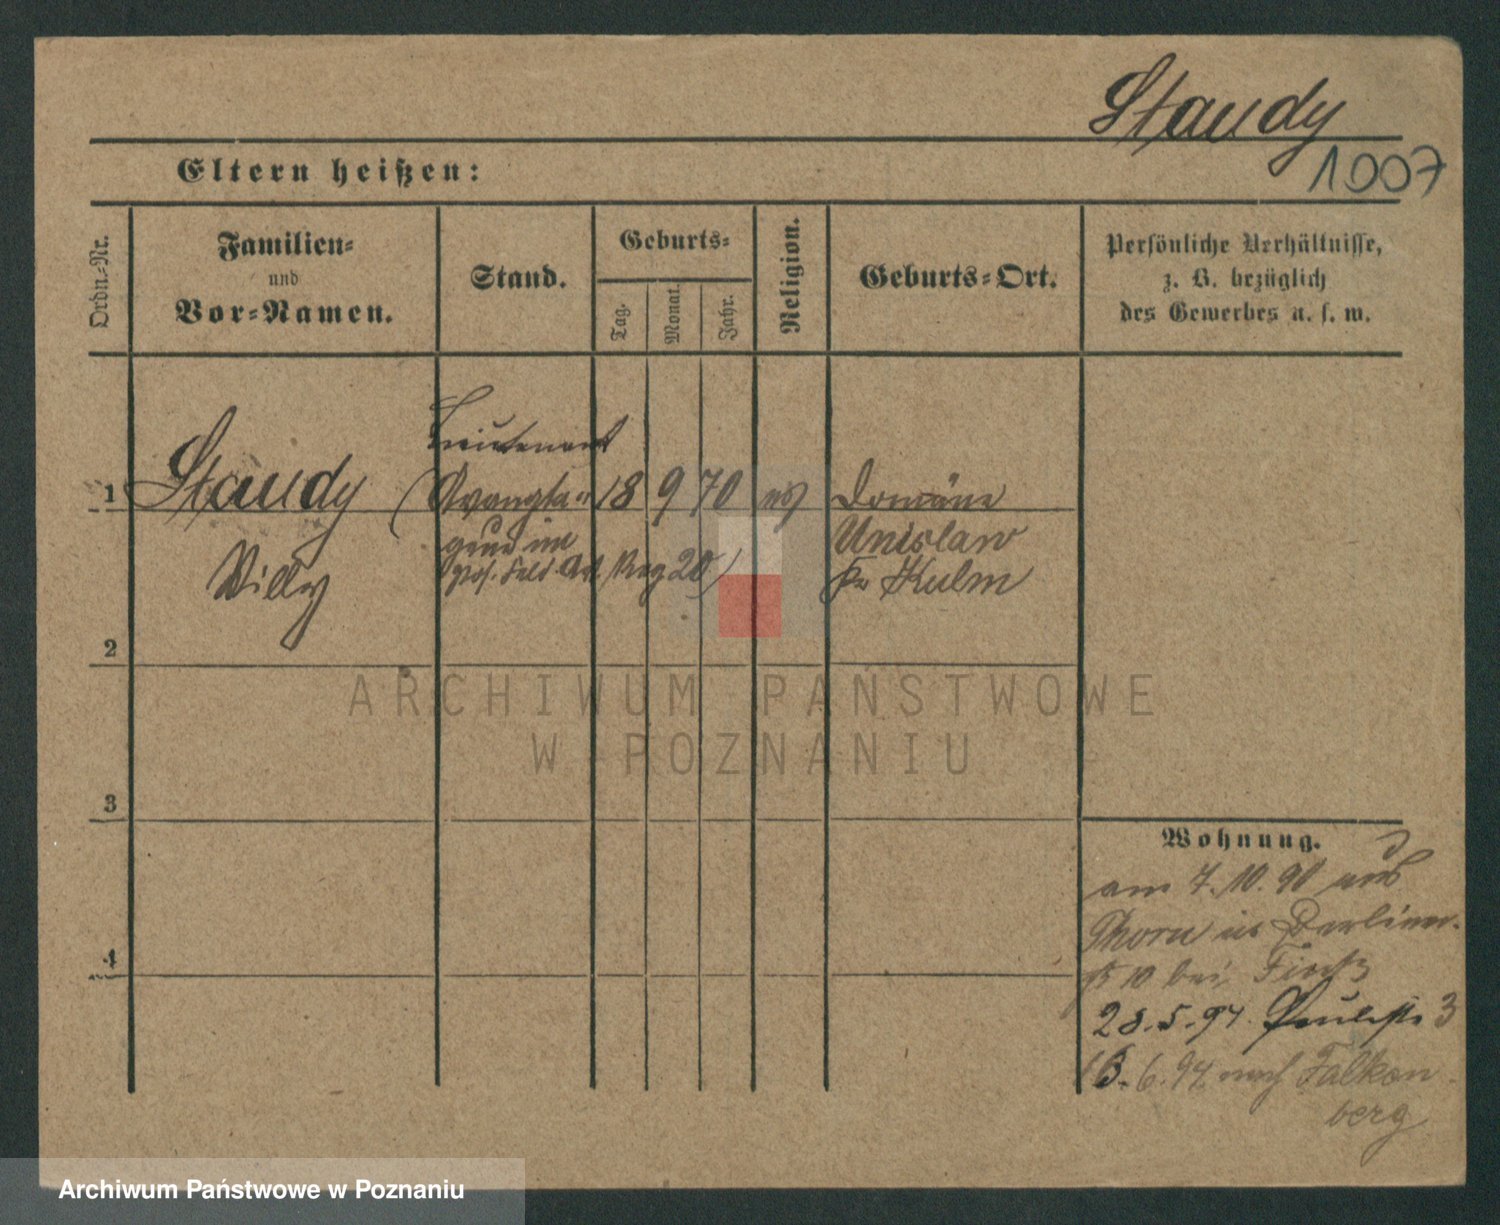 Staudy
1007
Eltern heißen:
Ordn.-Nr.
Familien-
und
Vor-Namen.
Stand.
Geburts-
Tag.
Monat.
Jahr.
Religion.
Geburts-Ort.
Persönliche Verhältnisse,
z. B. bezüglich
des Gewerbes u. s. w.
Lieutenant
1 Staudy 18 9 70 Domäne
Willy im Unislaw
Pos. Feld Art. Reg 20) Kr Kulm
2
3
4
Wohnung.
am 7.10.90 aus
Thorn in Berliner-
10 bei
28.5.94. Paulistr 3
13.6.94 nach Falken
berg
ARCHIWUM PAŃSTWOWE
W POZNANIU
Archiwum Państwowe w Poznaniu